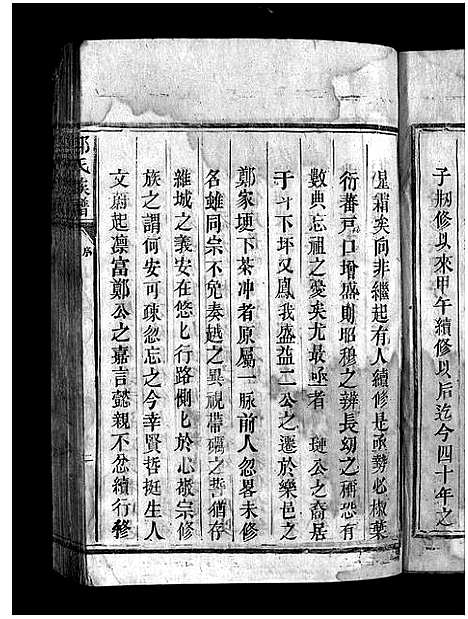 子刱修以來甲午續修以后迄今四十年之
星霜矣向非繼起有人續修是亟勢必椒葉
衍蕃戸口增盛則昭穆之辨長幼之稱恐有
數典忘祖之憂矣尤最亟者 璉公之裔居
于 下坪又鳳我盛益二公之遷於樂邑之
鄭家埂下茶冲者原屬一脉前人忽畧未修
名雖同宗不免秦越之異視帶礪之誓猶存
維城之義安在悠匕行路惻匕於心敬宗修
族之謂何安可疎忽忘之今幸賢哲挺生人
文蔚起凛富鄭公之嘉言懿親不忿續行修
鄭氏族譜
序
二